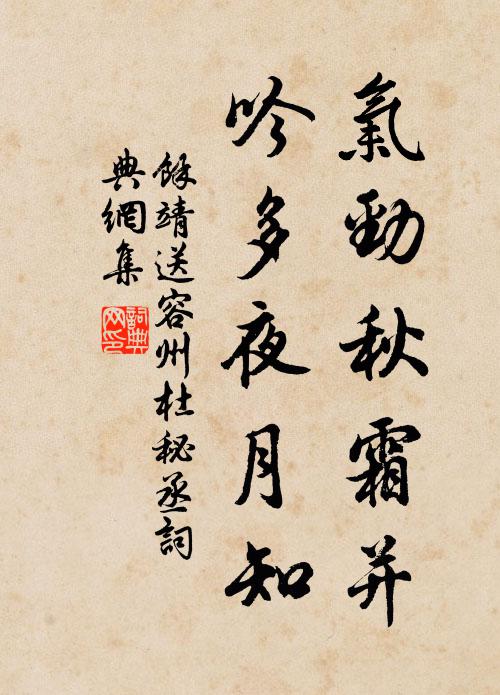 氣勁秋霜并
吟多夜月知
餘靖送容州杜秘丞詞
典網集
詞典
网印